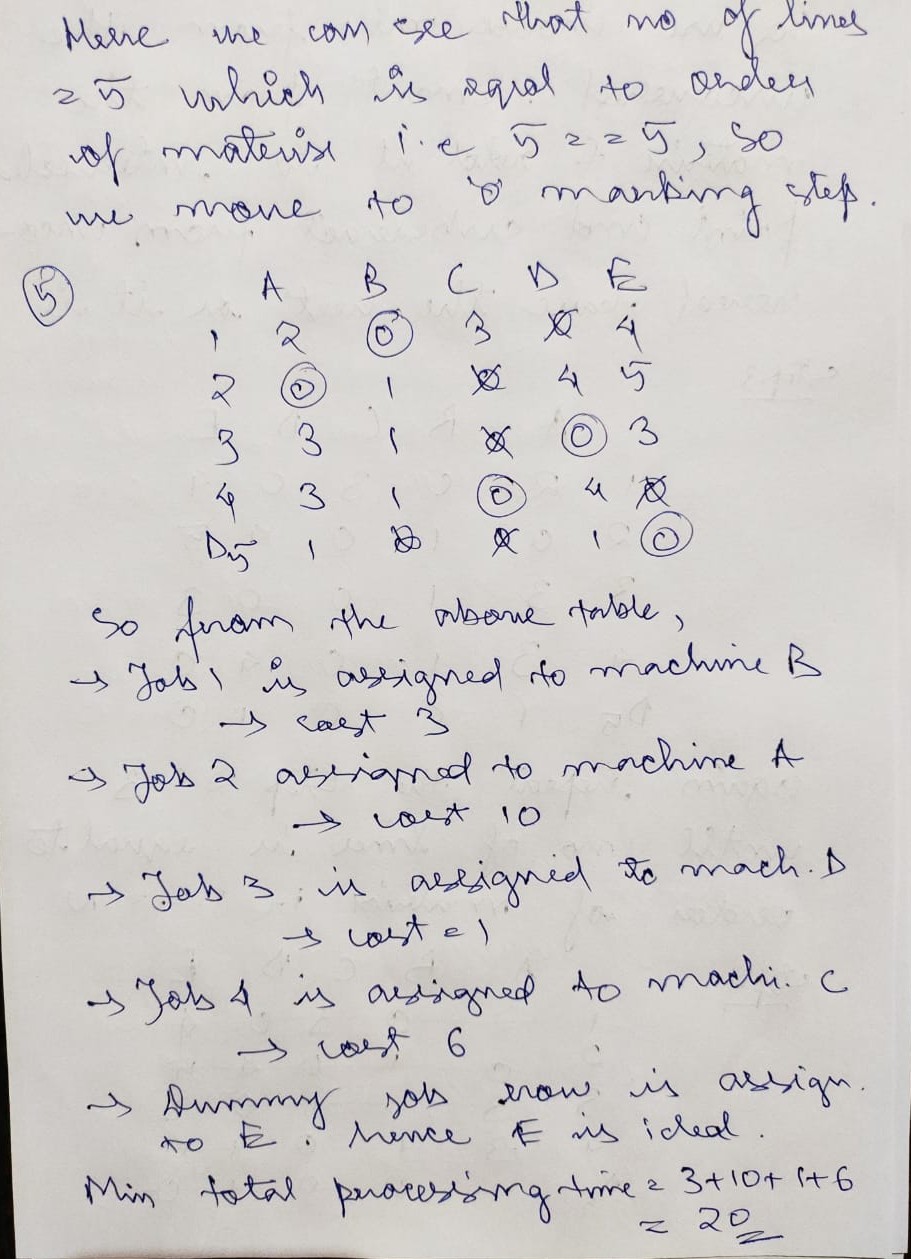 Here we can see that no of lines
= 5 which is eqal to order
of materix i.e 5 = = 5, So
we move to '0' marking step.
⑤
A B C D E
1 2 0 3 0 4
2 0 1 0 4 5
3 3 1 0 0 3
4 3 1 0 4 0
D5 1 0 0 1 0
So from the above table,
→ Job 1 is assigned to machine B
→ cost 3
→ Job 2 assigned to machine A
→ cost 10
→ Job 3 is assigned to mach. D
→ cost = 1
→ Job 4 is assigned to machi. C
→ cost 6
→ Dummy job row is assign.
to E. hence E is ideal.
Min total processing time = 3+10+1+6
= 20